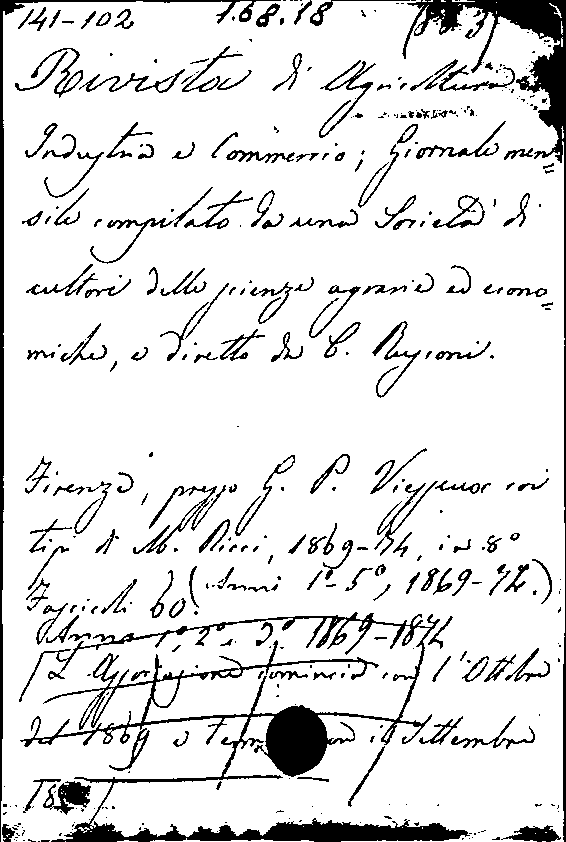 141-102 1.68.18
Rivista di Agricoltura
Industria e Commercio; Giornale men=
sile compilato da una Società di
cultori delle scienze agrarie ed econo=
miche, e diretto da C. Rusconi.
Firenze, presso G. P. Vieusseux coi
tipi di M. Ricci, 1869-74, in 8°
Fascicoli 60. (Anni 1°-5°, 1869-74.)
Anno 1°, 2° e 3° 1869-1872
[L'Associazione comincia con l'Ottobre
del 1869 e con il Settembre